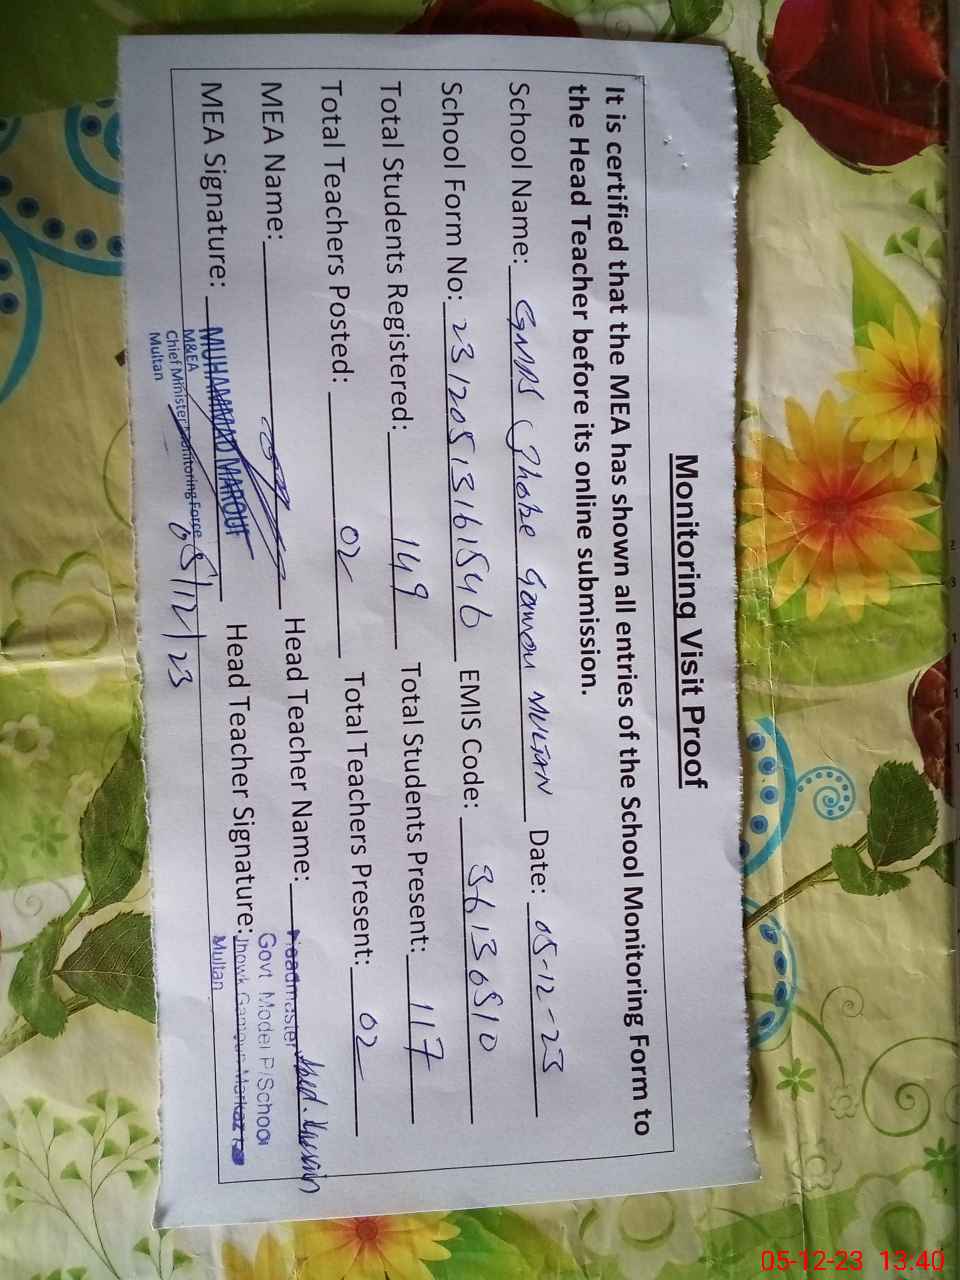 Monitoring Visit Proof
It is certified that the MEA has shown all entries of the School Monitoring Form to
the Head Teacher before its online submission.
School Name: GMPS Jhoke Gamou MULTAN Date: 05-12-23
School Form No: 23120513161546 EMIS Code: 36136510
Total Students Registered: 149 Total Students Present: 117
Total Teachers Posted: 02 Total Teachers Present: 02
MEA Name: Head Teacher Name:
Headmaster
Govt Model P/School
MEA Signature: Head Teacher Signature:
Jhowk Gamoun Markaz
Multan
MUHAMMAD MAROUF
M&EA
Chief Minister Monitoring Force
Multan
05/12/23
05-12-23 13.40